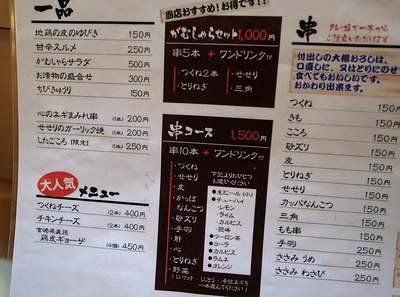 一品
地鶏の皮のゆびき 150円
甘辛スルメ 250円
がむしゃらサラダ 500円
お漬物の盛合せ 300円
ちびきゅうり 150円
心のネギまみれ串 (1本) 200円
せせりのガーリック焼 (1本) 200円
したごころ [限定] (1本) 250円
大人気
メニュー
つくねチーズ (2本) 400円
チキンチーズ (2本) 400円
宮崎県直送
鶏皮ギョーザ (4個) 450円
当店おすすめ!お得です!!
がむしゃらセット 1,000円
串5本 + ワンドリンク付
・つくね2本
・せせり
・とりねぎ
・三角
串コース 1,500円
串10本 + ワンドリンク付
・つくね
・せせり
・皮
・かっぱ
なんこつ
・砂ズリ
・手羽
・肝
・心
・とりねぎ
・野菜
下記よりおひとつ
お選びください
●生ビール(小)
●チューハイ
レモン
ライム
カルピス
巨峰
●ウーロン茶
●コーラ
●カルピス
●ラムネ
●オレンジ
串
タレ・塩で一本から
ご注文いただけます
付出しの大根おろしは、
口直しに、又はとりにのせて
食べてもおいしいです。
おかわり出来ます。
つくね 150円
きも 150円
こころ 150円
砂ズリ 150円
皮 150円
とりねぎ 150円
せせり 150円
カッパなんこつ 150円
三角 150円
もも串 150円
手羽 250円
ささみ うめ 250円
ささみ わさび 250円